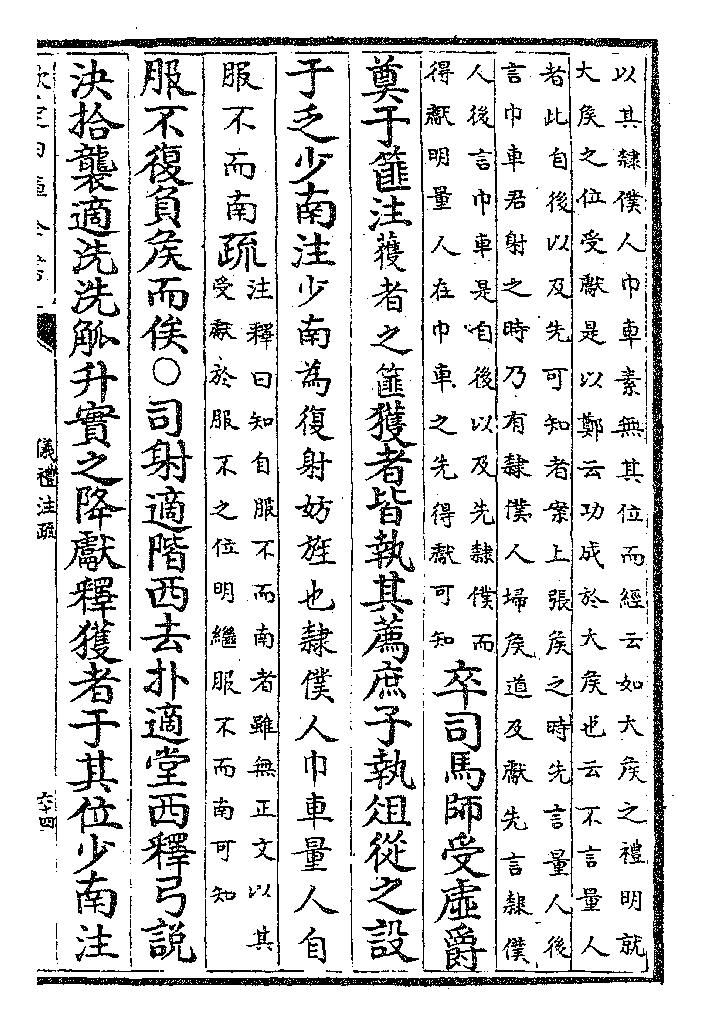 以其隸僕人巾車素無其位而經云如大矦之禮明就
大矦之位受獻是以鄭云功成於大矦也云不言量人
者此自後以及先可知者案上張矦之時先言量人後
言巾車君射之時乃有隸僕人埽矦道及獻先言隸僕
人後言巾車是自後以及先隸僕而
得獻明量人在巾車之先得獻可知
卒司馬師受虛爵
奠于篚注獲者之篚獲者皆執其薦庶子執俎從之設
于乏少南注少南為復射妨旌也隸僕人巾車量人自
服不而南疏
注釋曰知自服不而南者雖無正文以其
受獻於服不之位明繼服不而南可知
服不復負矦而俟○司射適階西去扑適堂西釋弓説
決拾襲適洗洗觚升實之降獻釋獲者于其位少南注
欽定四庫全書
儀禮注疏
六十四